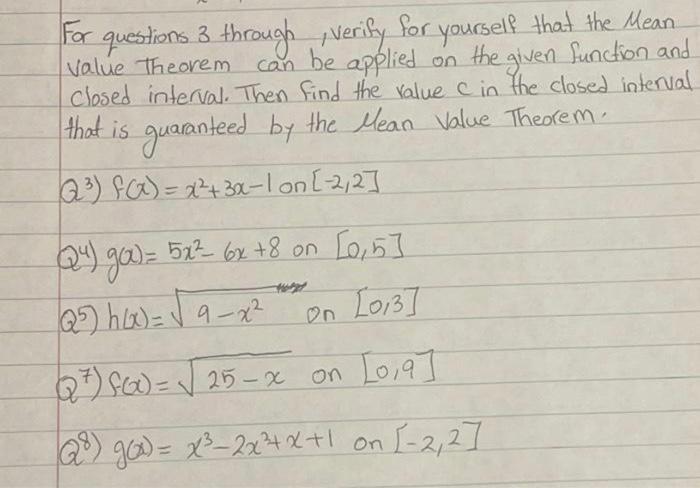 For questions 3 through , verify for yourself that the Mean
value Theorem can be applied on the given function and
closed interval. Then find the value c in the closed interval
that is guaranteed by the Mean Value Theorem.
Q3) f(x) = x²+3x-1 on [-2,2]
Q4) g(x) = 5x²- 6x +8 on [0,5]
Q5) h(x) = √9-x² on [0,3]
Q7) f(x) = √25-x on [0,9]
Q8) g(x) = x³-2x²+x+1 on [-2,2]